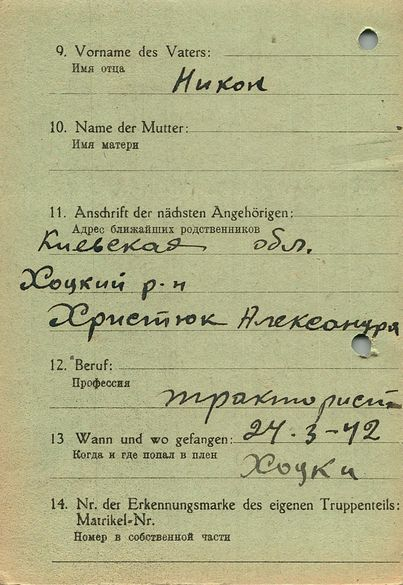 9. Vorname des Vaters:
Имя отца
Никон
10. Name der Mutter:
Имя матери
11. Anschrift der nächsten Angehörigen:
Адрес ближайших родственников
Киевская обл.
Хоцкий р-н
Христюк Александра
12. Beruf:
Профессия
тракторист
13 Wann und wo gefangen: 24-3-42
Когда и где попал в плен
Хоцки
14. Nr. der Erkennungsmarke des eigenen Truppenteils:
Matrikel-Nr.
Номер в собственной части